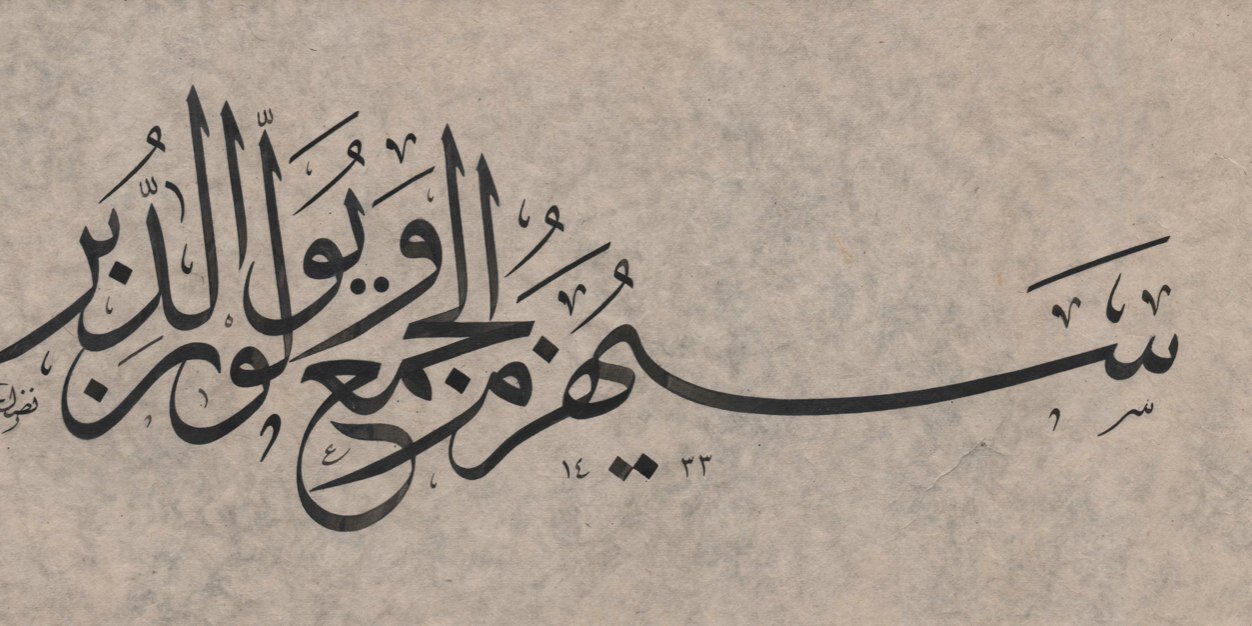 سَيُهْزَمُ الْجَمْعُ وَيُوَلُّونَ الدُّبُرَ
١٤٣٣